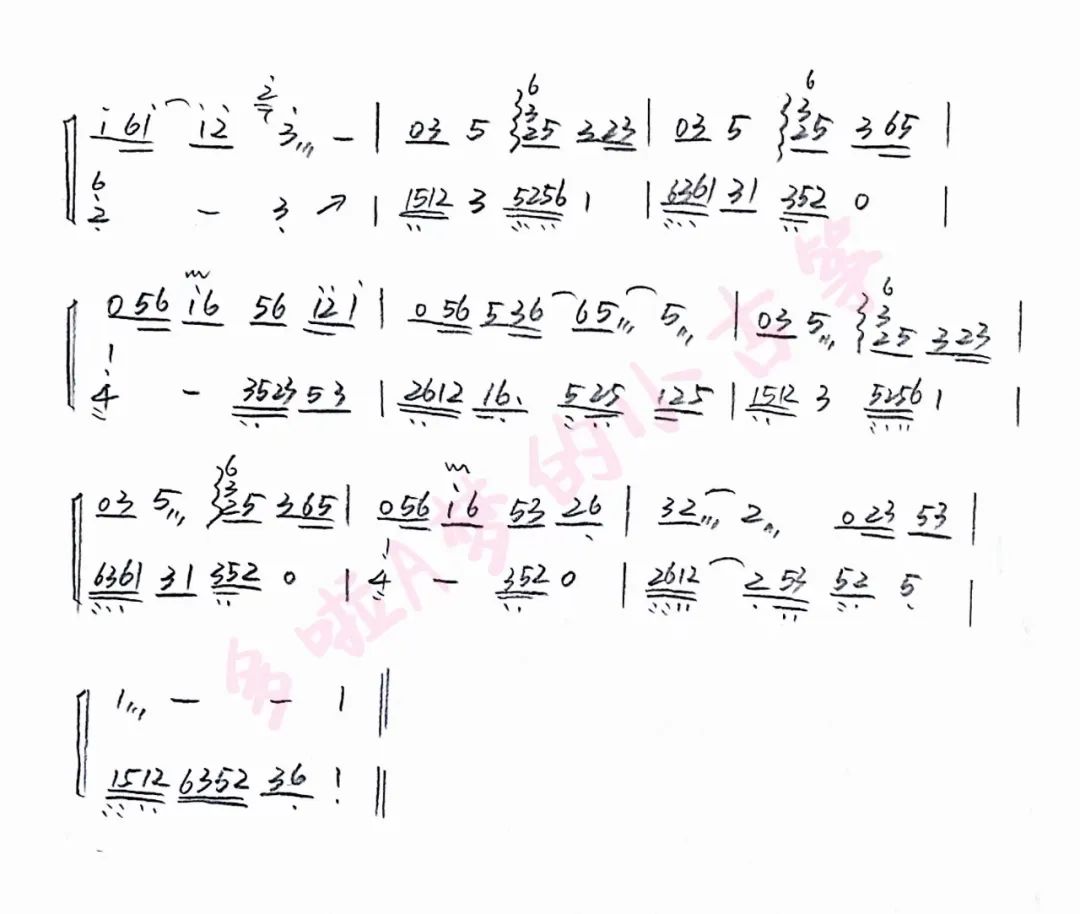 i 6i i2 2 3 - | 03 5 6 3 25 323 | 03 5 6 3 25 365 |
6 2 - 3 ↗ | 1512 3 5256 1 | 6361 31 352 0 |
0 56 i6 56 i2 i | 0 56 536 65 5 | 03 5 6 3 25 323 |
1 4 - 3523 53 | 2612 16. 525 125 | 1512 3 5256 1 |
03 5 6 3 25 365 | 056 i6 53 26 | 32 2 023 53 |
6361 31 352 0 | 1 4 - 352 0 | 2612 2 53 52 5 |
1 - - 1 ||
1512 6352 36 1 ||
多啦A梦的小古筝